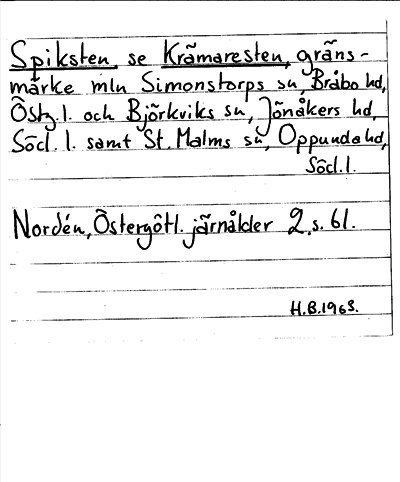 Spiksten, se Krämaresten, gräns-
märke mln Simonstorps sn, Bråbo hd,
Östg.l. och Björkviks sn, Jönåkers hd,
Södl.l. samt St. Malms sn, Oppunda hd,
Södl.l.
Nordén, Östergötl. järnålder 2, s. 61.
H.B.1963.